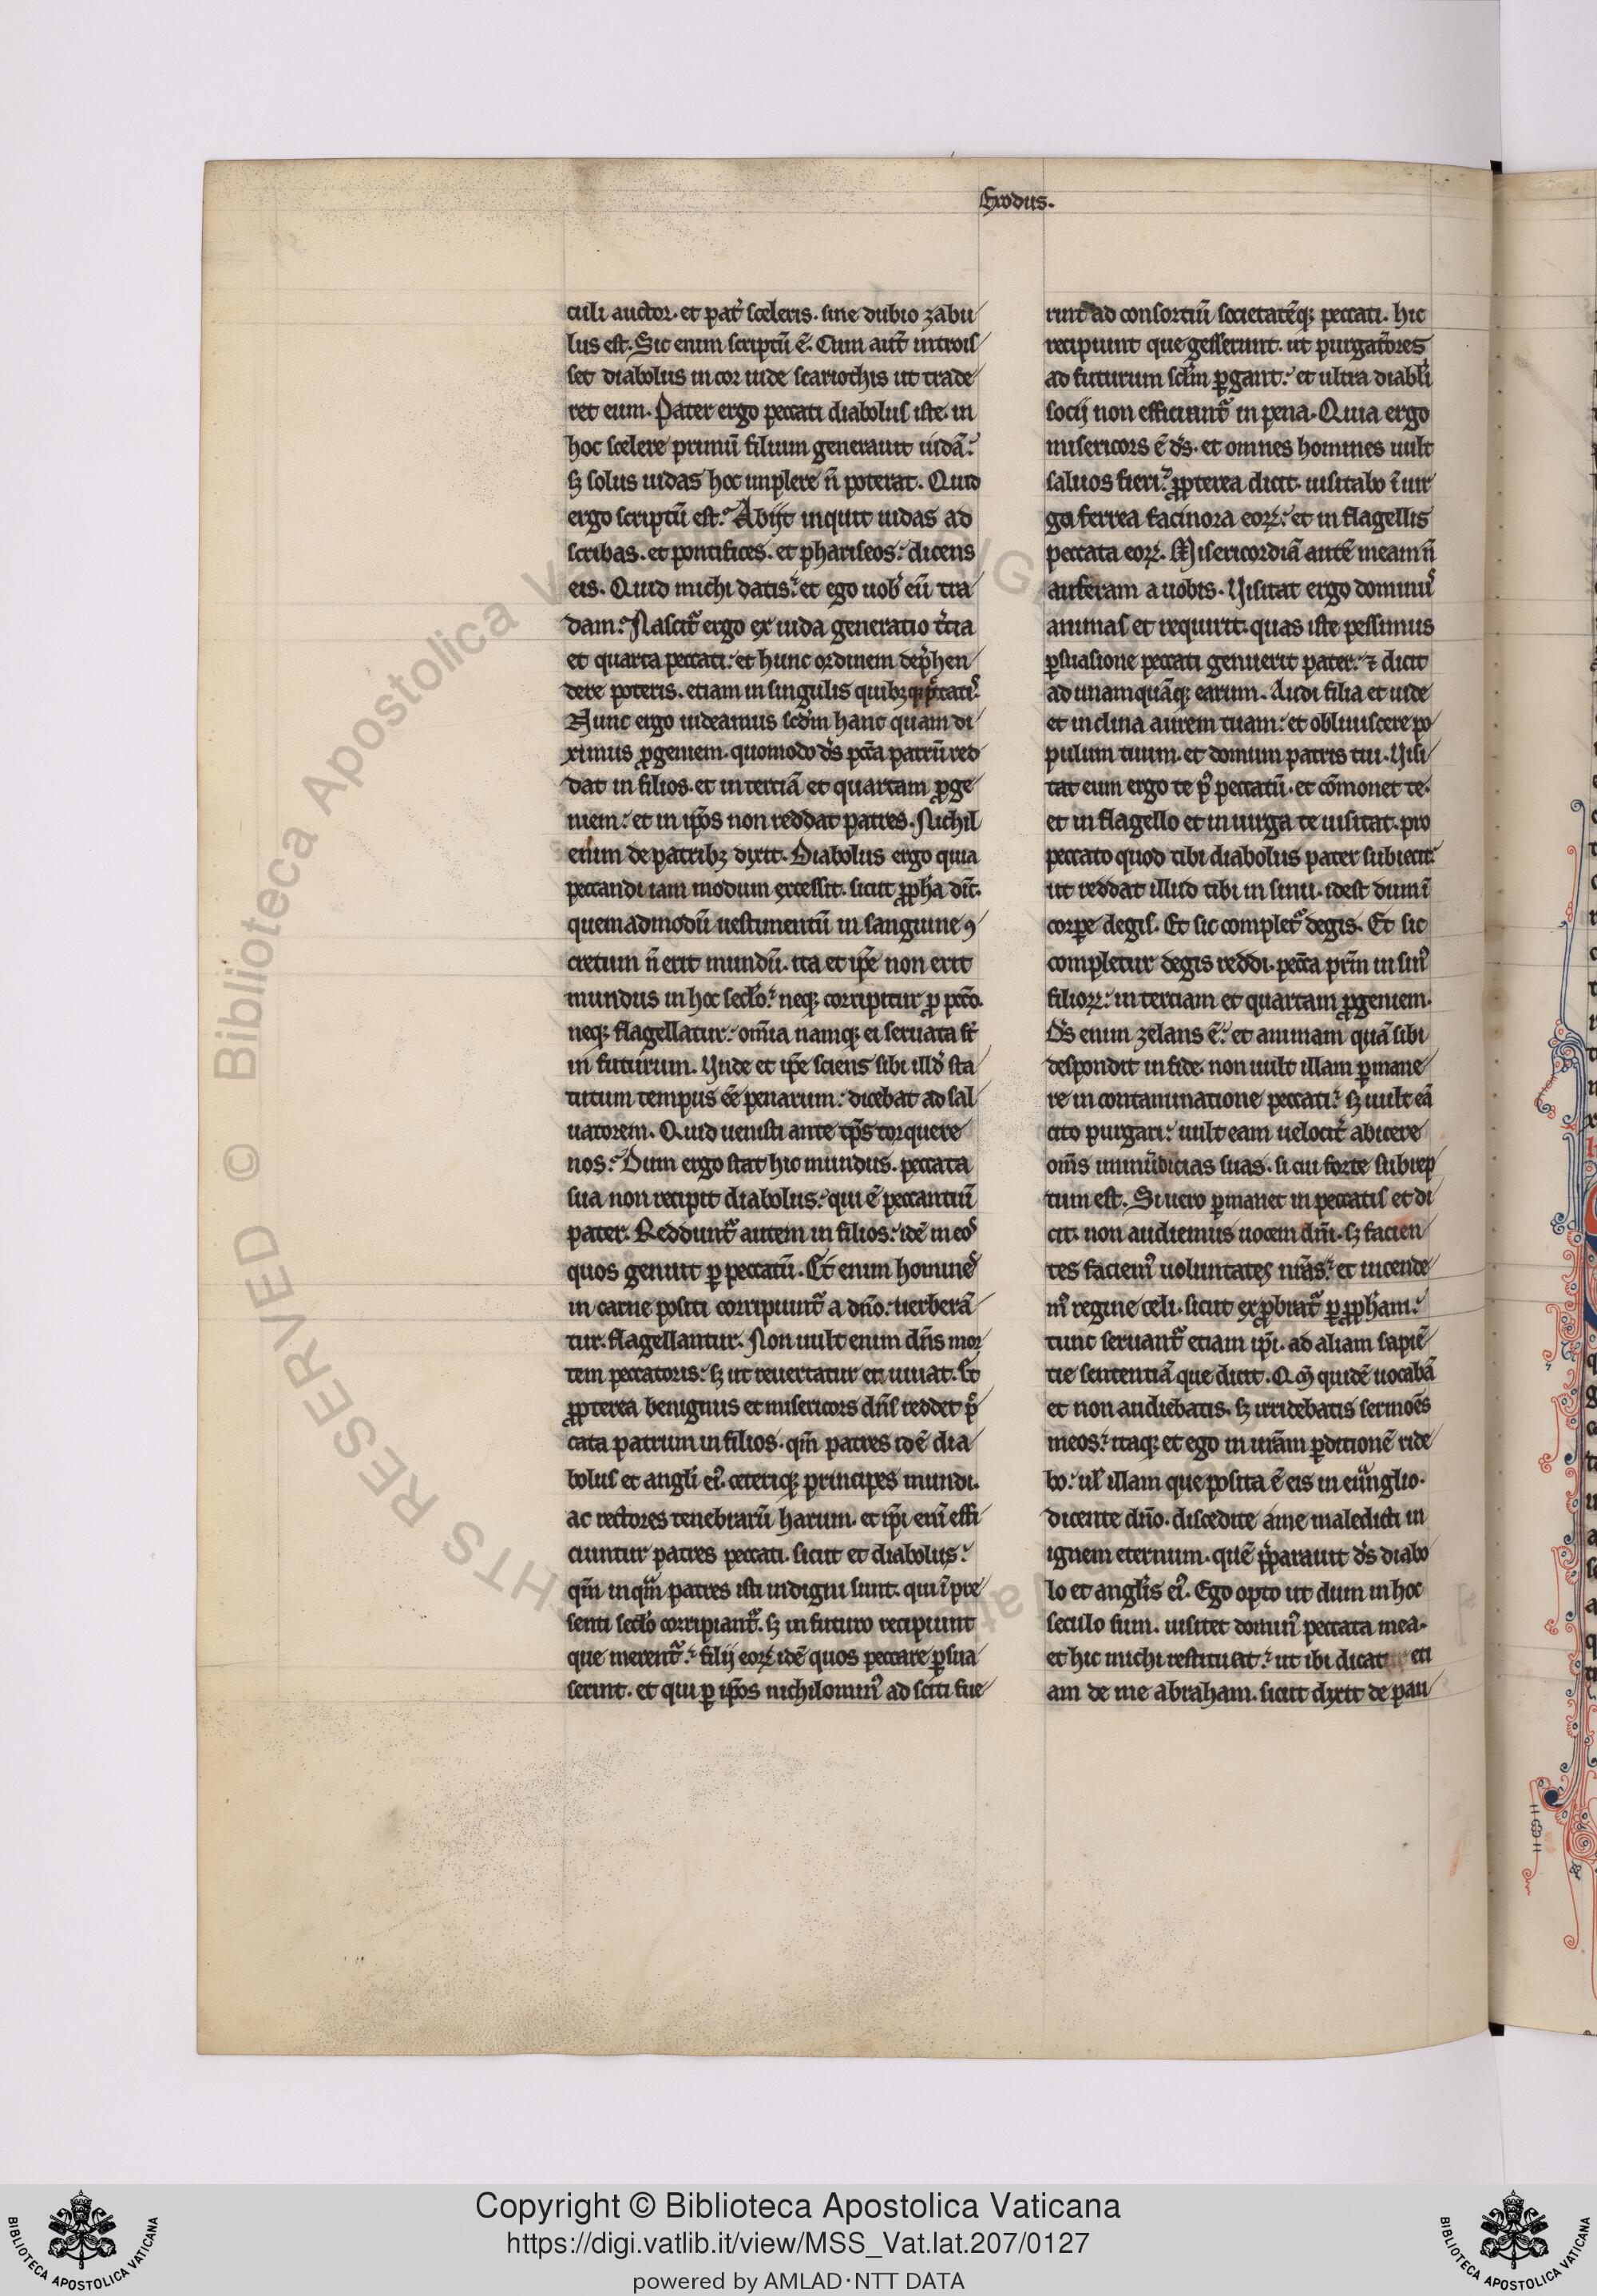 Exodus.
culi auctor. et pat̾ sceleris. sine dubio zabu
lus est. Sic enim scriptū ē. Cum aut̄ introis
set diabolus in cor iude scariothis ut trade
ret eum. Pater ergo peccati diabolus iste. in
hoc scelere primū filium generauit iudā.
sꝫ solus iudas hoc implere n̄ poterat. Quid
ergo scriptū est. Abijt inquit iudas ad
scribas. et pontifices. et phariseos. dicens
eis. Quid michi datis. et ego uob̾ eū tra
dam. Nascit̾ ergo ex iuda generatio t̾cia
et quarta peccati. et hunc ordinem dep̄hen
dere poteris. etiam in singulis quibꝫqꝫ
Nunc ergo uideamus scd̄m hanc quam di
ximus ꝓgeniem. quomodo d̄s pcc̄a patrū red
dat in filios. et in terciā et quartam ꝓge
niem. et in ip̄os non reddat patres. Nichil
enim de patribꝫ dixit. Diabolus ergo quia
peccandi iam modum excessit. sicut ꝓph̄a dic̄.
quemadmodū uestimentū in sanguine ꝯ
cretum n̄ erit mundū. ita et ip̄e non erit
mundus in hoc secl̄o. neqꝫ corripitur ꝓ pcc̄o.
neqꝫ flagellatur. om̄ia namqꝫ ei seruata st̄
in futurum. Vnde et ip̄e sciens sibi illd̾ sta
tutum tempus ēē penarum. dicebat ad sal
uatorem. Quid uenisti ante tp̄s torquere
nos. Dum ergo stat hic mundus. peccata
sua non recipit diabolus. qui ē peccantiū
pater. Reddunt̾ autem in filios. idē in eos
quos genuit ꝑ peccatū. Et enim homines
in carne positi corripiunt̾ a dn̄o. uerberā
tur. flagellantur. Non uult enim dn̄s mor
tem peccatoris. sꝫ ut reuertatur et uiuat. Et
ꝓpterea benignus et misericors dn̄s reddet pec
cata patrum in filios. qm̄ patres idē dia
bolus et angl̄i ei᾽. ceteriqꝫ principes mundi.
ac rectores tenebrarū harum. et ip̄i eni effi
ciuntur patres peccati. sicut et diabolus.
qm̄ inqm̄ patres isti indigni sunt. qui ī pre
senti secl̄o corripiant̾. sꝫ in futuro recipiunt
que merent̾. filij eoꝝ idē quos peccare ꝑsua
serint. et qui ꝑ ip̄os nichilomin᾽ ad sciti fue
rint ad consortiū societatēqꝫ peccati. hic
recipiunt que gesserunt. ut purgatiores
ad futurum scl̄m ꝑgant. et ultra diabl̄i
socij non efficiant̾ in pena. Quia ergo
misericors ē d̄s. et omnes homines uult
saluos fieri. ꝓpterea dicit. uisitabo ī uir
ga ferrea facinora eoꝝ. et in flagellis
peccata eoꝝ. Misericordiā autē meam n̄
auferam a uobis. Visitat ergo dominus
animas et requirit. quas iste pessimus
ꝑsuasione peccati genuerit pater. ⁊ dicit
ad unamquāqꝫ earum. Audi filia et uide
et inclina aurem tuam. et obliuiscere po
pulum tuum. et domum patris tui. Visi
tat eum ergo te p᾽ peccatū. et cōmonet te.
et in flagello et in uirga te uisitat. pro
peccato quod tibi diabolus pater subiecit.
ut reddat illud tibi in sinu. idest dum ī
corꝑe degis. Et sic complet̾ degis. Et sic
completur degis reddi. pecc̄a pr̄m in sin᾽
filioꝝ. in terciam et quartam ꝓgeniem.
Ds̄ enim zelans ē. et animam quā sibi
despondit in fide. non uult illam ꝑmane
re in contaminatione peccati. sꝫ uult eā
cito purgari. uult eam uelocit̾ abicere
om̄s immūdicias suas. si cui forte subrep
tum est. Si uero ꝑmanet in peccatis et di
cit. non audiemus uocem dn̄i. sꝫ facien
tes faciem᾽ uoluntates nr̄as. et incende
m᾽ regine celi. sicut exꝓbrat̾ ꝑ ꝓph̄am.
tunc seruant̾ etiam ip̄i. ad aliam sapiē
tie sententiā que dicit. Qm̄ quidē uocabā
et non audiebatis. sꝫ irridebatis sermōes
meos. itaqꝫ et ego in ur̄am ꝑditionē ride
bo. ul̄ illam que posita ē eis in euāglio.
dicente dn̄o. discedite a me maledicti in
ignem eternum. quē p̄parauit d̄s diabo
lo et angl̄is ei᾽. Ego opto ut dum in hoc
seculo sum. uisitet domin᾽ peccata mea.
et hic michi restituat. ut ibi dicat eti
am de me abraham. sicut dixit de pau
© Biblioteca Apostolica Vaticana
RESERVED
Copyright © Biblioteca Apostolica Vaticana
https://digi.vatlib.it/view/MSS_Vat.lat.207/0127
powered by AMLAD·NTT DATA
BIBLIOTECA APOSTOLICA VATICANA
BIBLIOTECA APOSTOLICA VATICANA